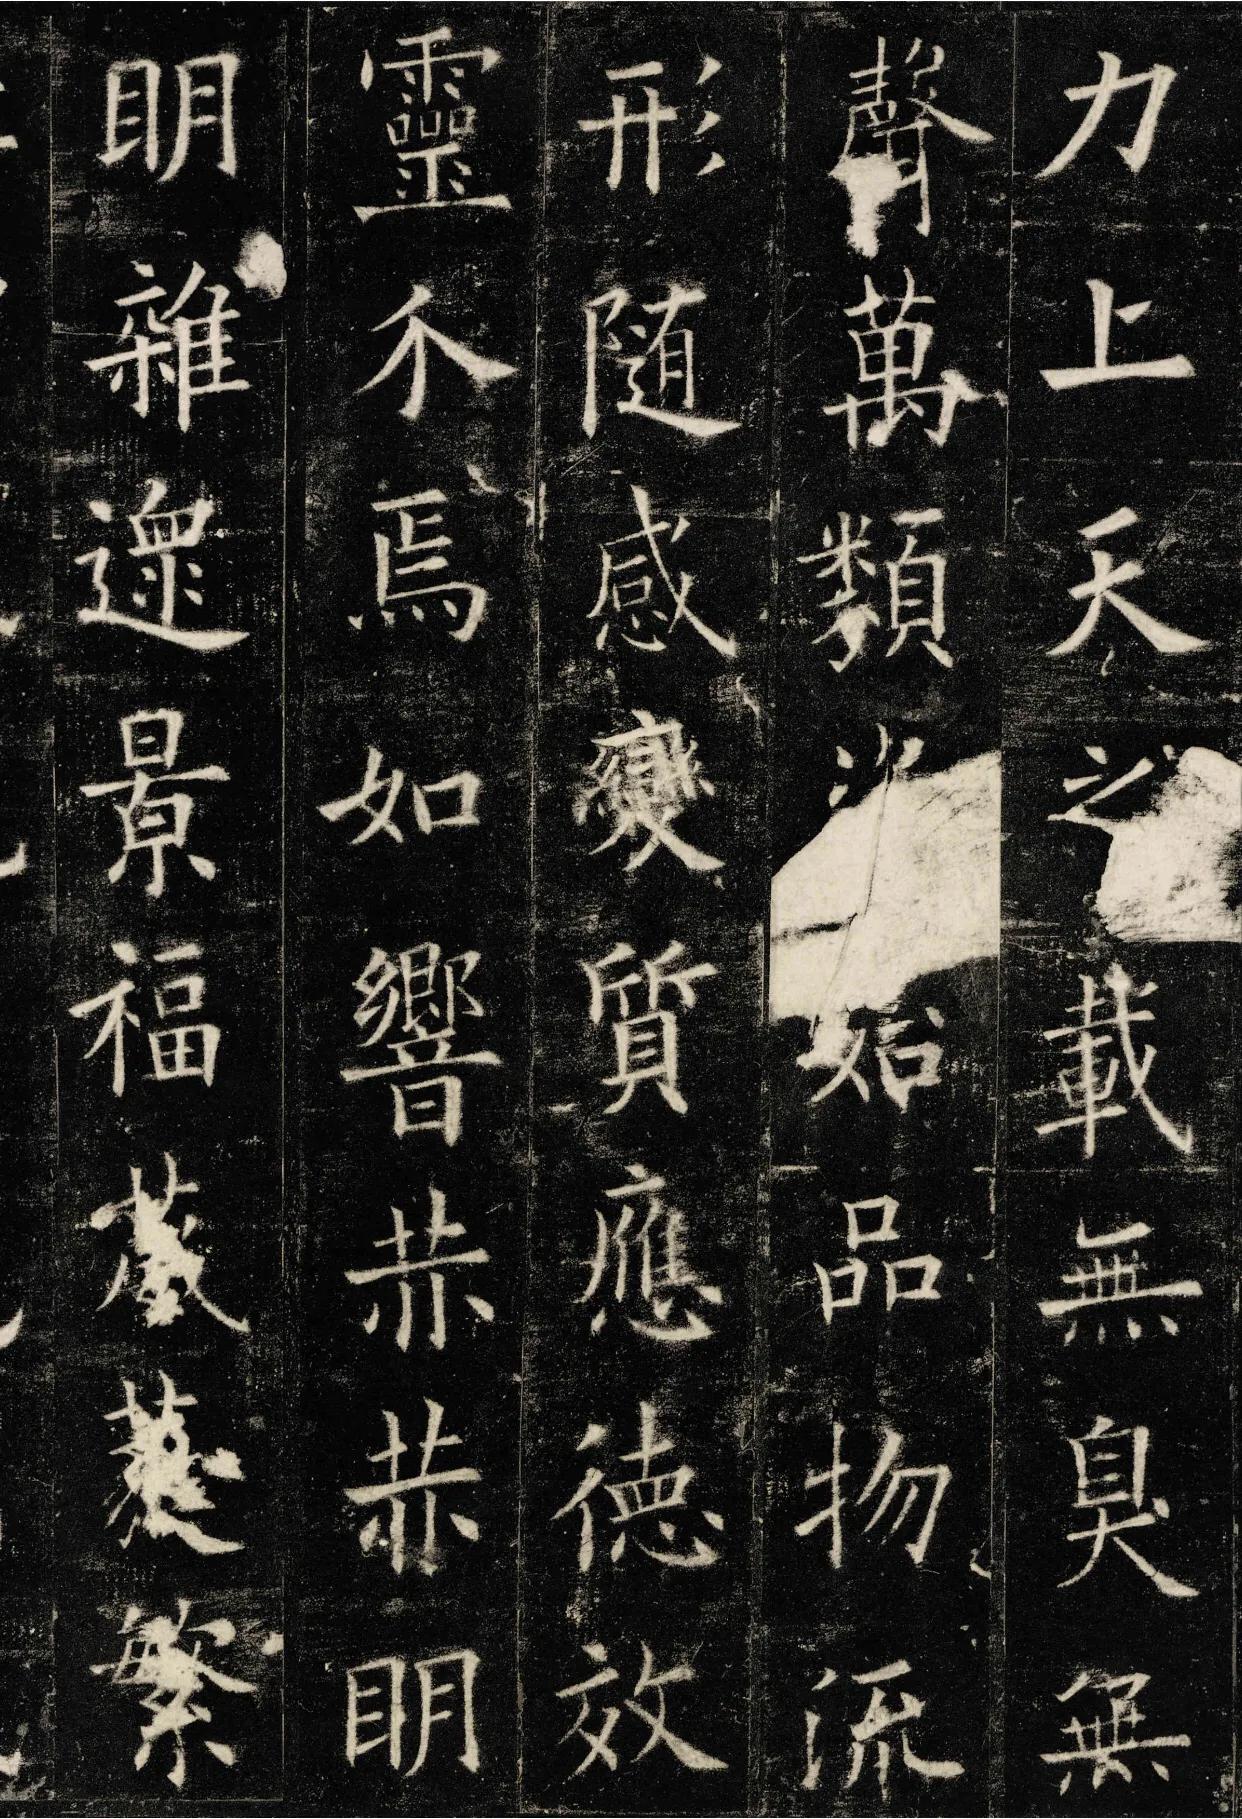 力上天之載無臭無
聲萬類始品物流
形随感變質應德效
靈介焉如響赫赫明
明雜遝景福葳蕤繁